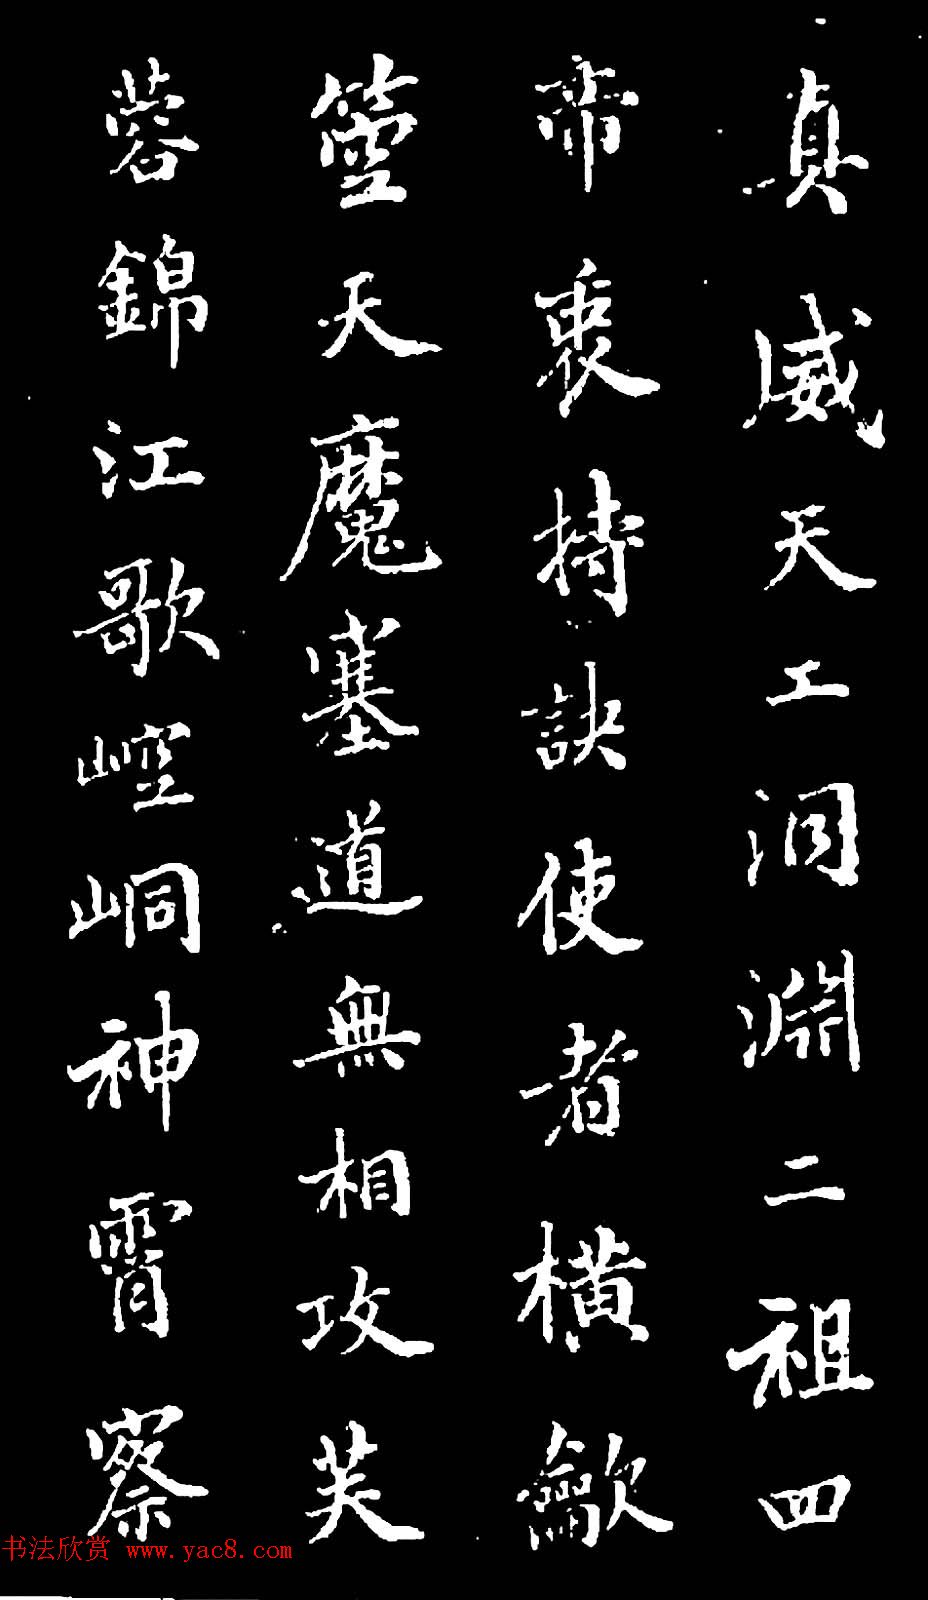 真威天工洞淵二祖四
帝衷持訣使者橫歙
箜天魔塞道無相攻芙
蓉錦江歌崆峒神霄察
书法欣赏 www.yac8.com